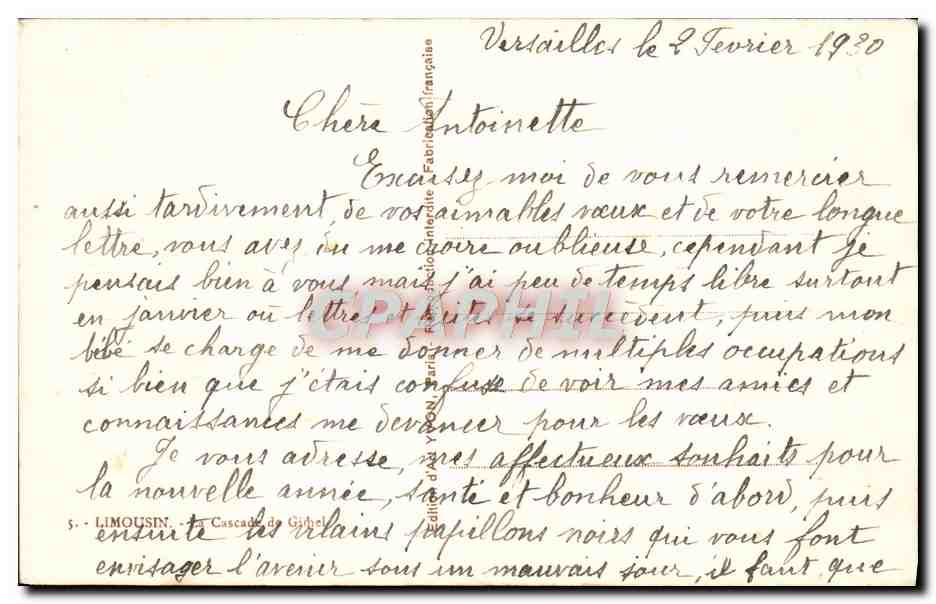 Versailles le 2 Fevrier 1930
Chère Antoinette
Excusez moi de vous remercier
aussi tardivement, de vos aimables vœux et de votre longue
lettre, vous avez du me croire oublieuse, cependant je
pensais bien à vous mais j'ai peu de temps libre surtout
en janvier où lettres et se succèdent, puis mon
bébé se charge de me donner de multiples occupations
si bien que j'étais confuse de voir mes amies et
connaissances me devancer pour les vœux.
Je vous adresse, mes affectueux souhaits pour
la nouvelle année, santé et bonheur d'abord, puis
ensuite les vilains papillons noirs qui vous font
envisager l'avenir sous un mauvais jour, il faut que
5. - LIMOUSIN. - La Cascade de Gimel
Editions d'Art YVON, Paris. - Reproduction interdite - Fabrication française
CPAPHIL